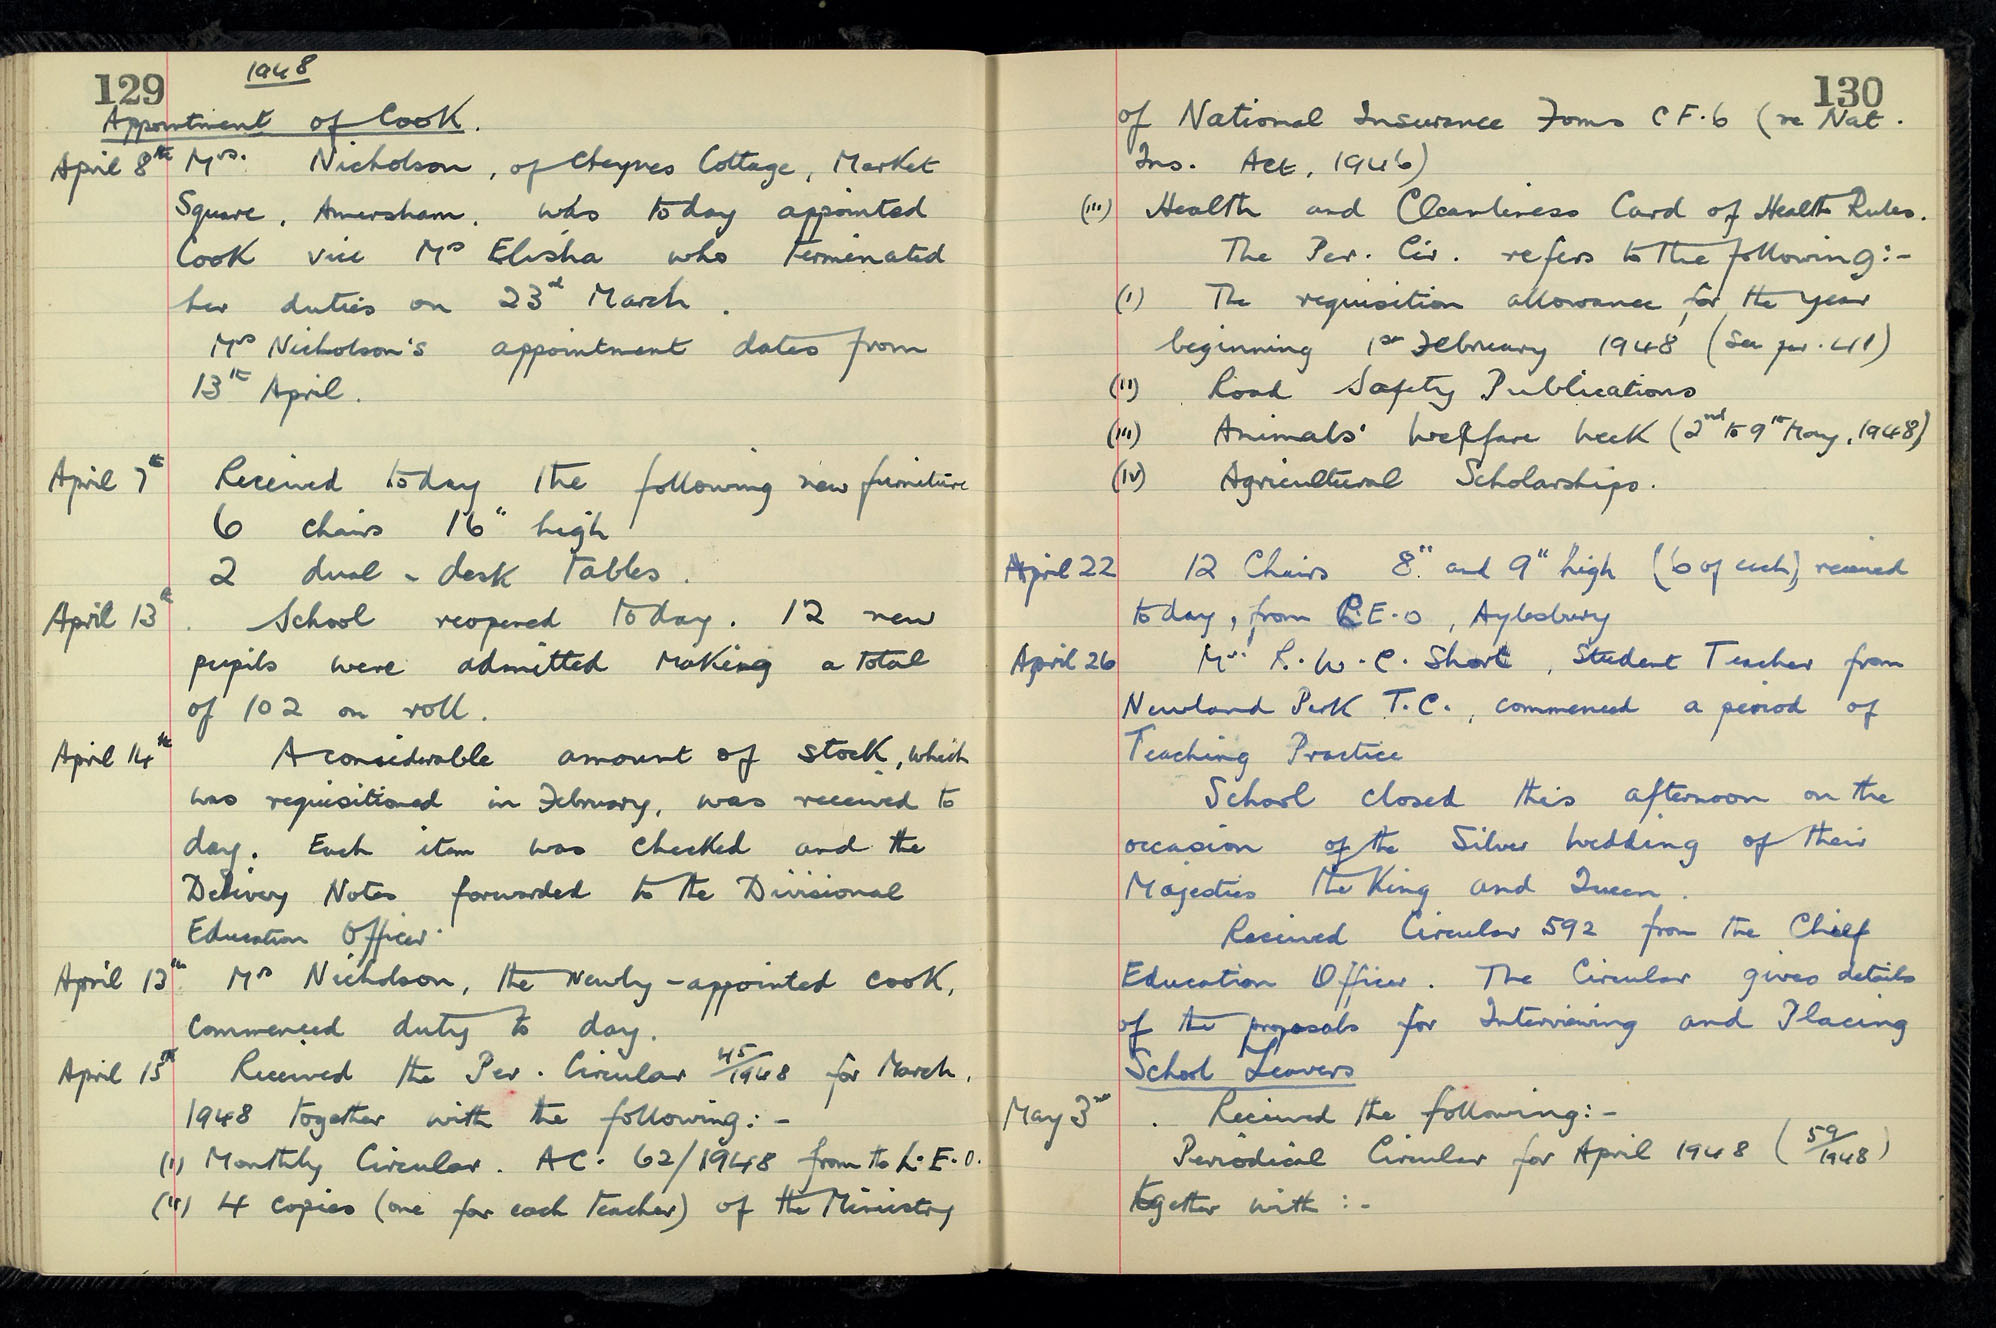 129
1948
Appointment of Cook.
April 8th Mrs. Nicholson, of Cheynes Cottage, Market
Square, Amersham, was today appointed
Cook vice Mrs Elisha who terminated
her duties on 23rd March.
Mrs Nicholson's appointment dates from
13th April.
April 7th Received today the following new furniture
6 chairs 16" high
2 dual-desk tables.
April 13th. School reopened today. 12 new
pupils were admitted making a total
of 102 on roll.
April 14th A considerable amount of stock, which
was requisitioned in February, was received to
day. Each item was checked and the
Delivery Notes forwarded to the Divisional
Education Officer.
April 13th. Mrs Nicholson, the newly-appointed cook,
commenced duty to day.
April 15th Received the Per. Circular 45/1948 for March,
1948 together with the following:-
(i) Monthly Circular. AC. 62/1948 from the L.E.O.
(ii) 4 copies (one for each teacher) of the Ministry
130
of National Insurance Forms CF.6 (re Nat.
Ins. Act, 1946)
(iii) Health and Cleanliness Card of Health Rules.
The Per. Cir. refers to the following:-
(i) The requisition allowance for the year
beginning 1st February 1948 (See par. 411)
(ii) Road Safety Publications
(iii) Animals' Welfare Week (2nd to 9th May, 1948)
(iv) Agricultural Scholarships.
April 22 12 Chairs 8" and 9" high (6 of each) received
today, from C.E.O, Aylesbury
April 26 Mr. L.W.C. Short, Student Teacher from
Newland Park T.C., commenced a period of
Teaching Practice
School closed this afternoon on the
occasion of the Silver Wedding of their
Majesties the King and Queen.
Received Circular 592 from the Chief
Education Officer. The Circular gives details
of the proposals for Interviewing and Placing
School Leavers
May 3rd. Received the following:-
Periodical Circular for April 1948 (59/1948)
together with:-